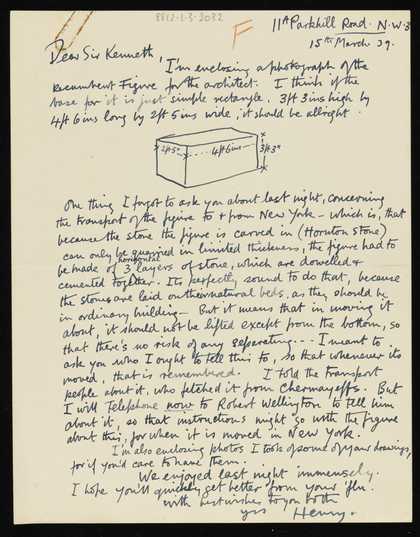 8812-1-3-2032
F
11A Parkhill Road. N.W.3
15th March 39.
Dear Sir Kenneth,
I'm enclosing a photograph of the
Recumbent Figure for the architect. I think if the
base for it is just simple rectangle. 3ft 3ins high by
4ft 6ins long by 2ft 5ins wide, it should be allright.
2ft 5" 4ft 6ins 3ft 3"
One thing I forgot to ask you about last night, concerning
the transport of the figure to & from New York – which is, that
because the stone the figure is carved in (Hornton Stone)
can only be quarried in limited thickness, the figure had to
be made of 3 horizontal layers of stone, which are dowelled &
cemented together. Its perfectly sound to do that, because
the stones are laid on their natural beds, as they should be
in ordinary building – But it means that in moving it
about, it should not be lifted except from the bottom, so
that there's no risk of any seperating --- I meant to
ask you who I ought to tell this to, so that whenever its
moved, that is remembered. I told the transport
people about it, who fetched it from Chermayeffs. But
I will telephone now to Robert Wellington to tell him
about it, so that instructions might go with the figure
about this, for when it is moved in New York.
I'm also enclosing photos I took of some of your drawings,
for if you'd care to have them.
We enjoyed last night immensely.
I hope you'll quickly get better from your 'flu.
with best wishes to you both
yrs Henry.